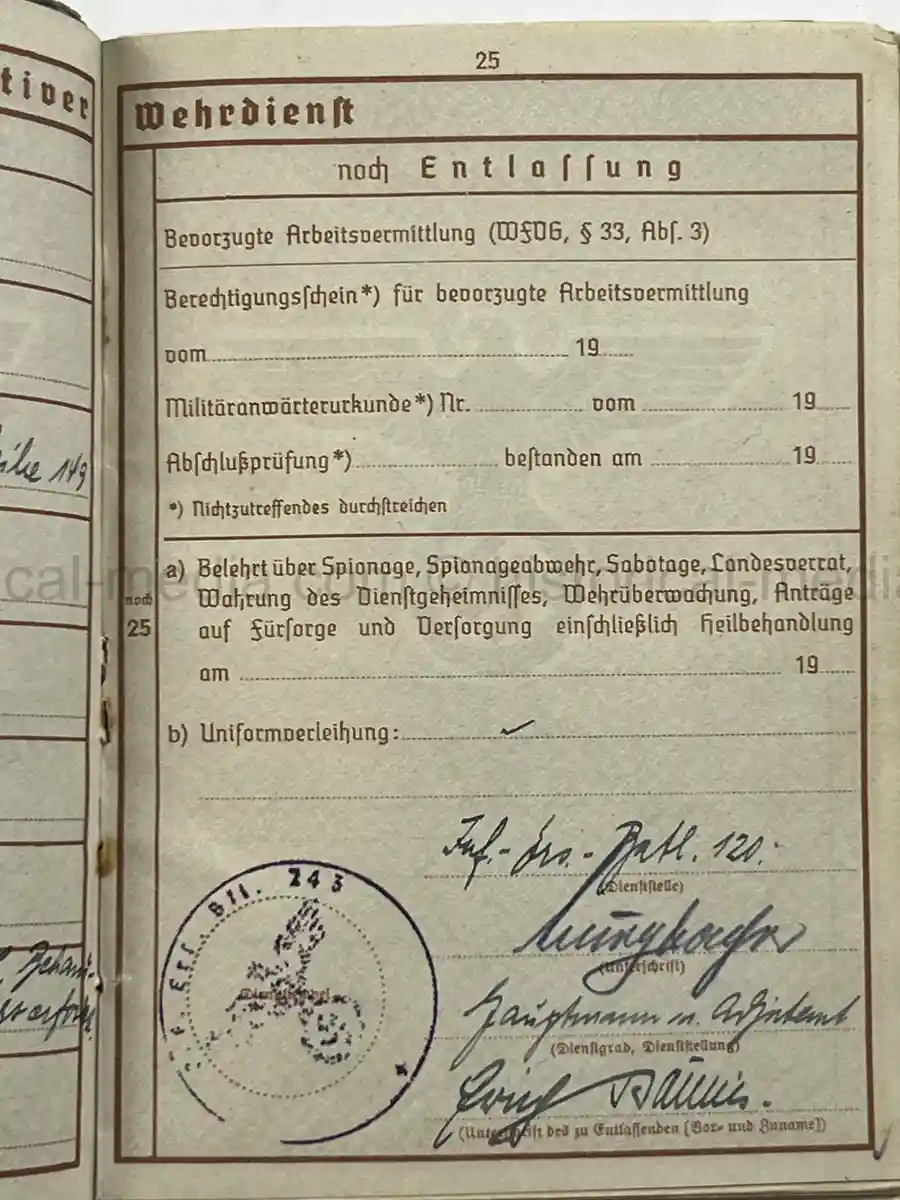 25
tiver
Wehrdienst
noch Entlassung
Bevorzugte Arbeitsvermittlung (WFVG, § 33, Abs. 3)
Berechtigungsschein*) für bevorzugte Arbeitsvermittlung
vom 19
Militäranwärterurkunde*) Nr. vom 19
Abschlußprüfung*) bestanden am 19
*) Nichtzutreffendes durchstreichen
149
noch
25
a) Belehrt über Spionage, Spionageabwehr, Sabotage, Landesverrat,
Wahrung des Dienstgeheimnisses, Wehrüberwachung, Anträge
auf Fürsorge und Versorgung einschließlich Heilbehandlung
am 19
b) Uniformverleihung: ✓
Inf.-Ers.-Batl. 120.
(Dienststelle)
(Unterschrift)
Hauptmann u. Adjutant
(Dienstgrad, Dienststellung)
Erich
(Unterschrift des zu Entlassenden [Vor- und Zuname])
Btl. 243
Dienstsiegel